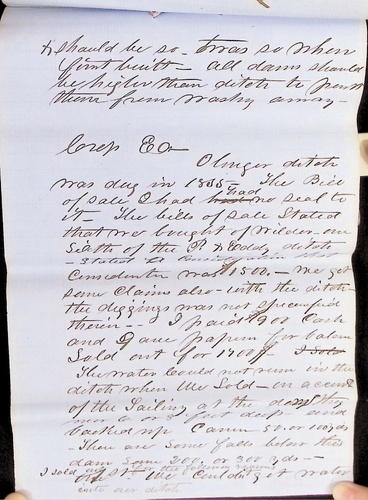 & should be so - twas so when
first built - all dams should
be higher than ditch to prevent
them from washing away -
Cross Ex
Olinger ditch
was dug in 1855 The Bill
of sale I had had no seal to
it - The bills of sale stated
that we bought of Wilder one
Sixth of the P. & Eddy ditch
Consideration was 1500. - We got
some claims also with the ditch
the diggings was not specified
therein - I paid 900 Cash
and gave papers for balance
Sold out for 1700 I sold
The water could not run in the
ditch when we sold - on account
of the Tailing at the dam
feet deep and
backed up 50. or 100 yds -
There are some falls below the
dam some 200. or 300 yds -
I sold for the following reasons
We couldn't get water
into our ditch